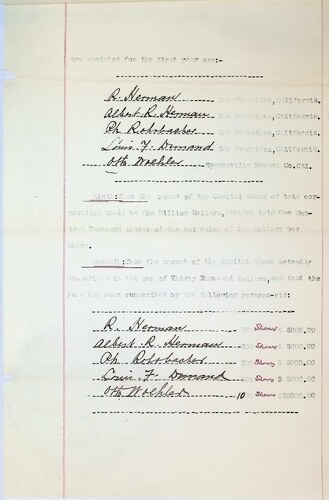 are appointed for the first year are:-
R. Herman San Francisco, California.
Albert R. Herman San Francisco, California.
Ph. Rohrbacher San Francisco, California.
Louis F. Dunand San Francisco, California.
Otto Woehler Spenceville Nevada Co. Cal.
Sixth: That the amount of the Capital Stock of this cor-
poration shall be One Million Dollars, divided into One Hun-
dred Thousand shares of the par value of Ten Dollars per
share.
Seventh: That the amount of the Capital Stock actually
subscribed is the sum of Thirty Thousand Dollars, and that the
same has been subscribed by the following persons-viz:
R. Herman 500 Shares $ 5000.00
Albert R. Herman 500 Shares $ 5000.00
Ph Rohrbacher 500 Shares $ 5000.00
Louis F. Dunand Shares $ 5000.00
Otto Woehler 10 Shares $10000.00